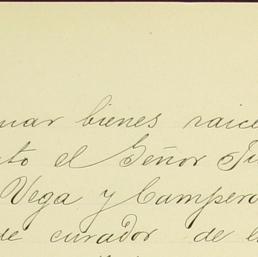 nar bienes raice
to el Señor Ju
Vega y Campero
de curador de